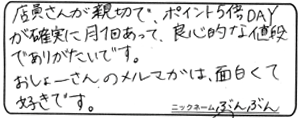 店員さんが親切で、ポイント5倍DAY
が確実に月1回あって、良心的な値段
でありがたいです。
おしょーさんのメルマガは、面白くて
好きです。
ニックネーム ぶんぶん